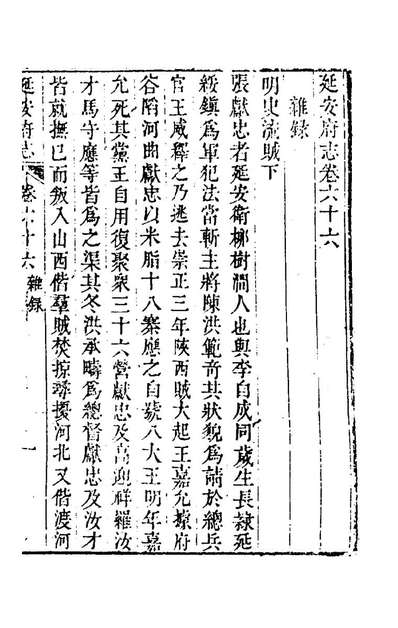 延安府志卷六十六
雜錄
明史流賊下
張獻忠者延安衛柳樹澗人也與李自成同歲生長隸延
綏鎮爲軍犯法當斬主將陳洪範竒其狀貌爲請於總兵
官王威釋之乃逃去崇正三年陝西賊大起王嘉允據府
谷陷河曲獻忠以米脂十八寨應之自號八大王明年嘉
允死其黨王自用復聚衆三十六營獻忠及高迎祥羅汝
才馬守應等皆爲之渠其冬洪承疇爲總督獻忠及汝才
皆就撫已而叛入山西偕羣賊焚掠尋擾河北又偕渡河
延安府志
卷六十六
雜錄
一